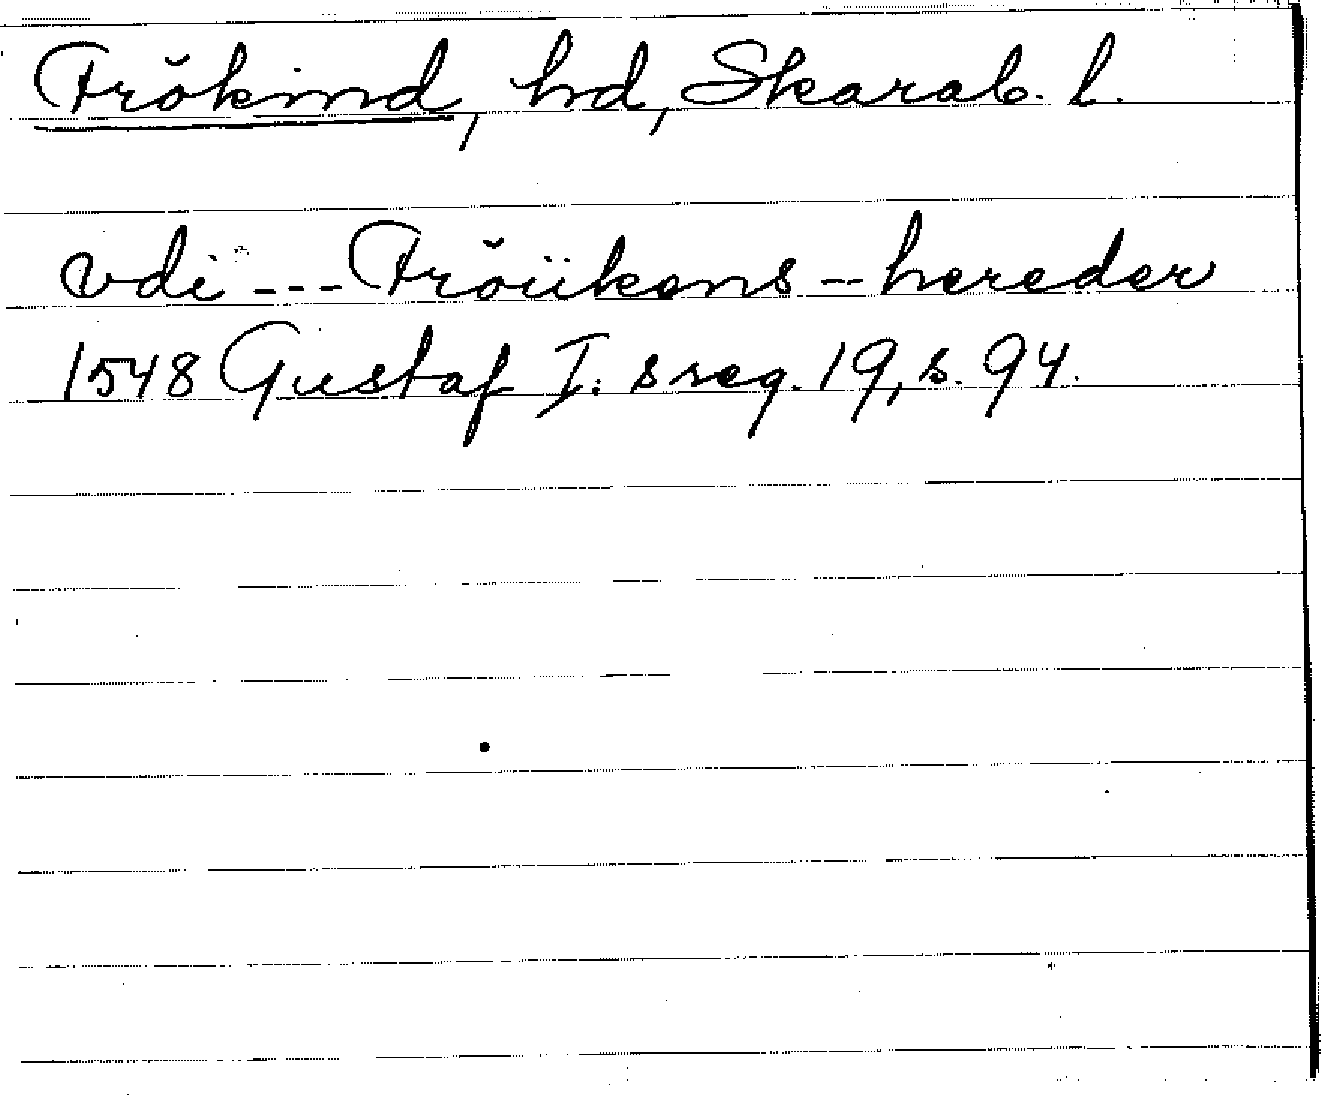 Frökind, hd, Skarab. l.
vdi --- Fröükens -- hereder
1548 Gustaf I:s reg. 19, s. 94.